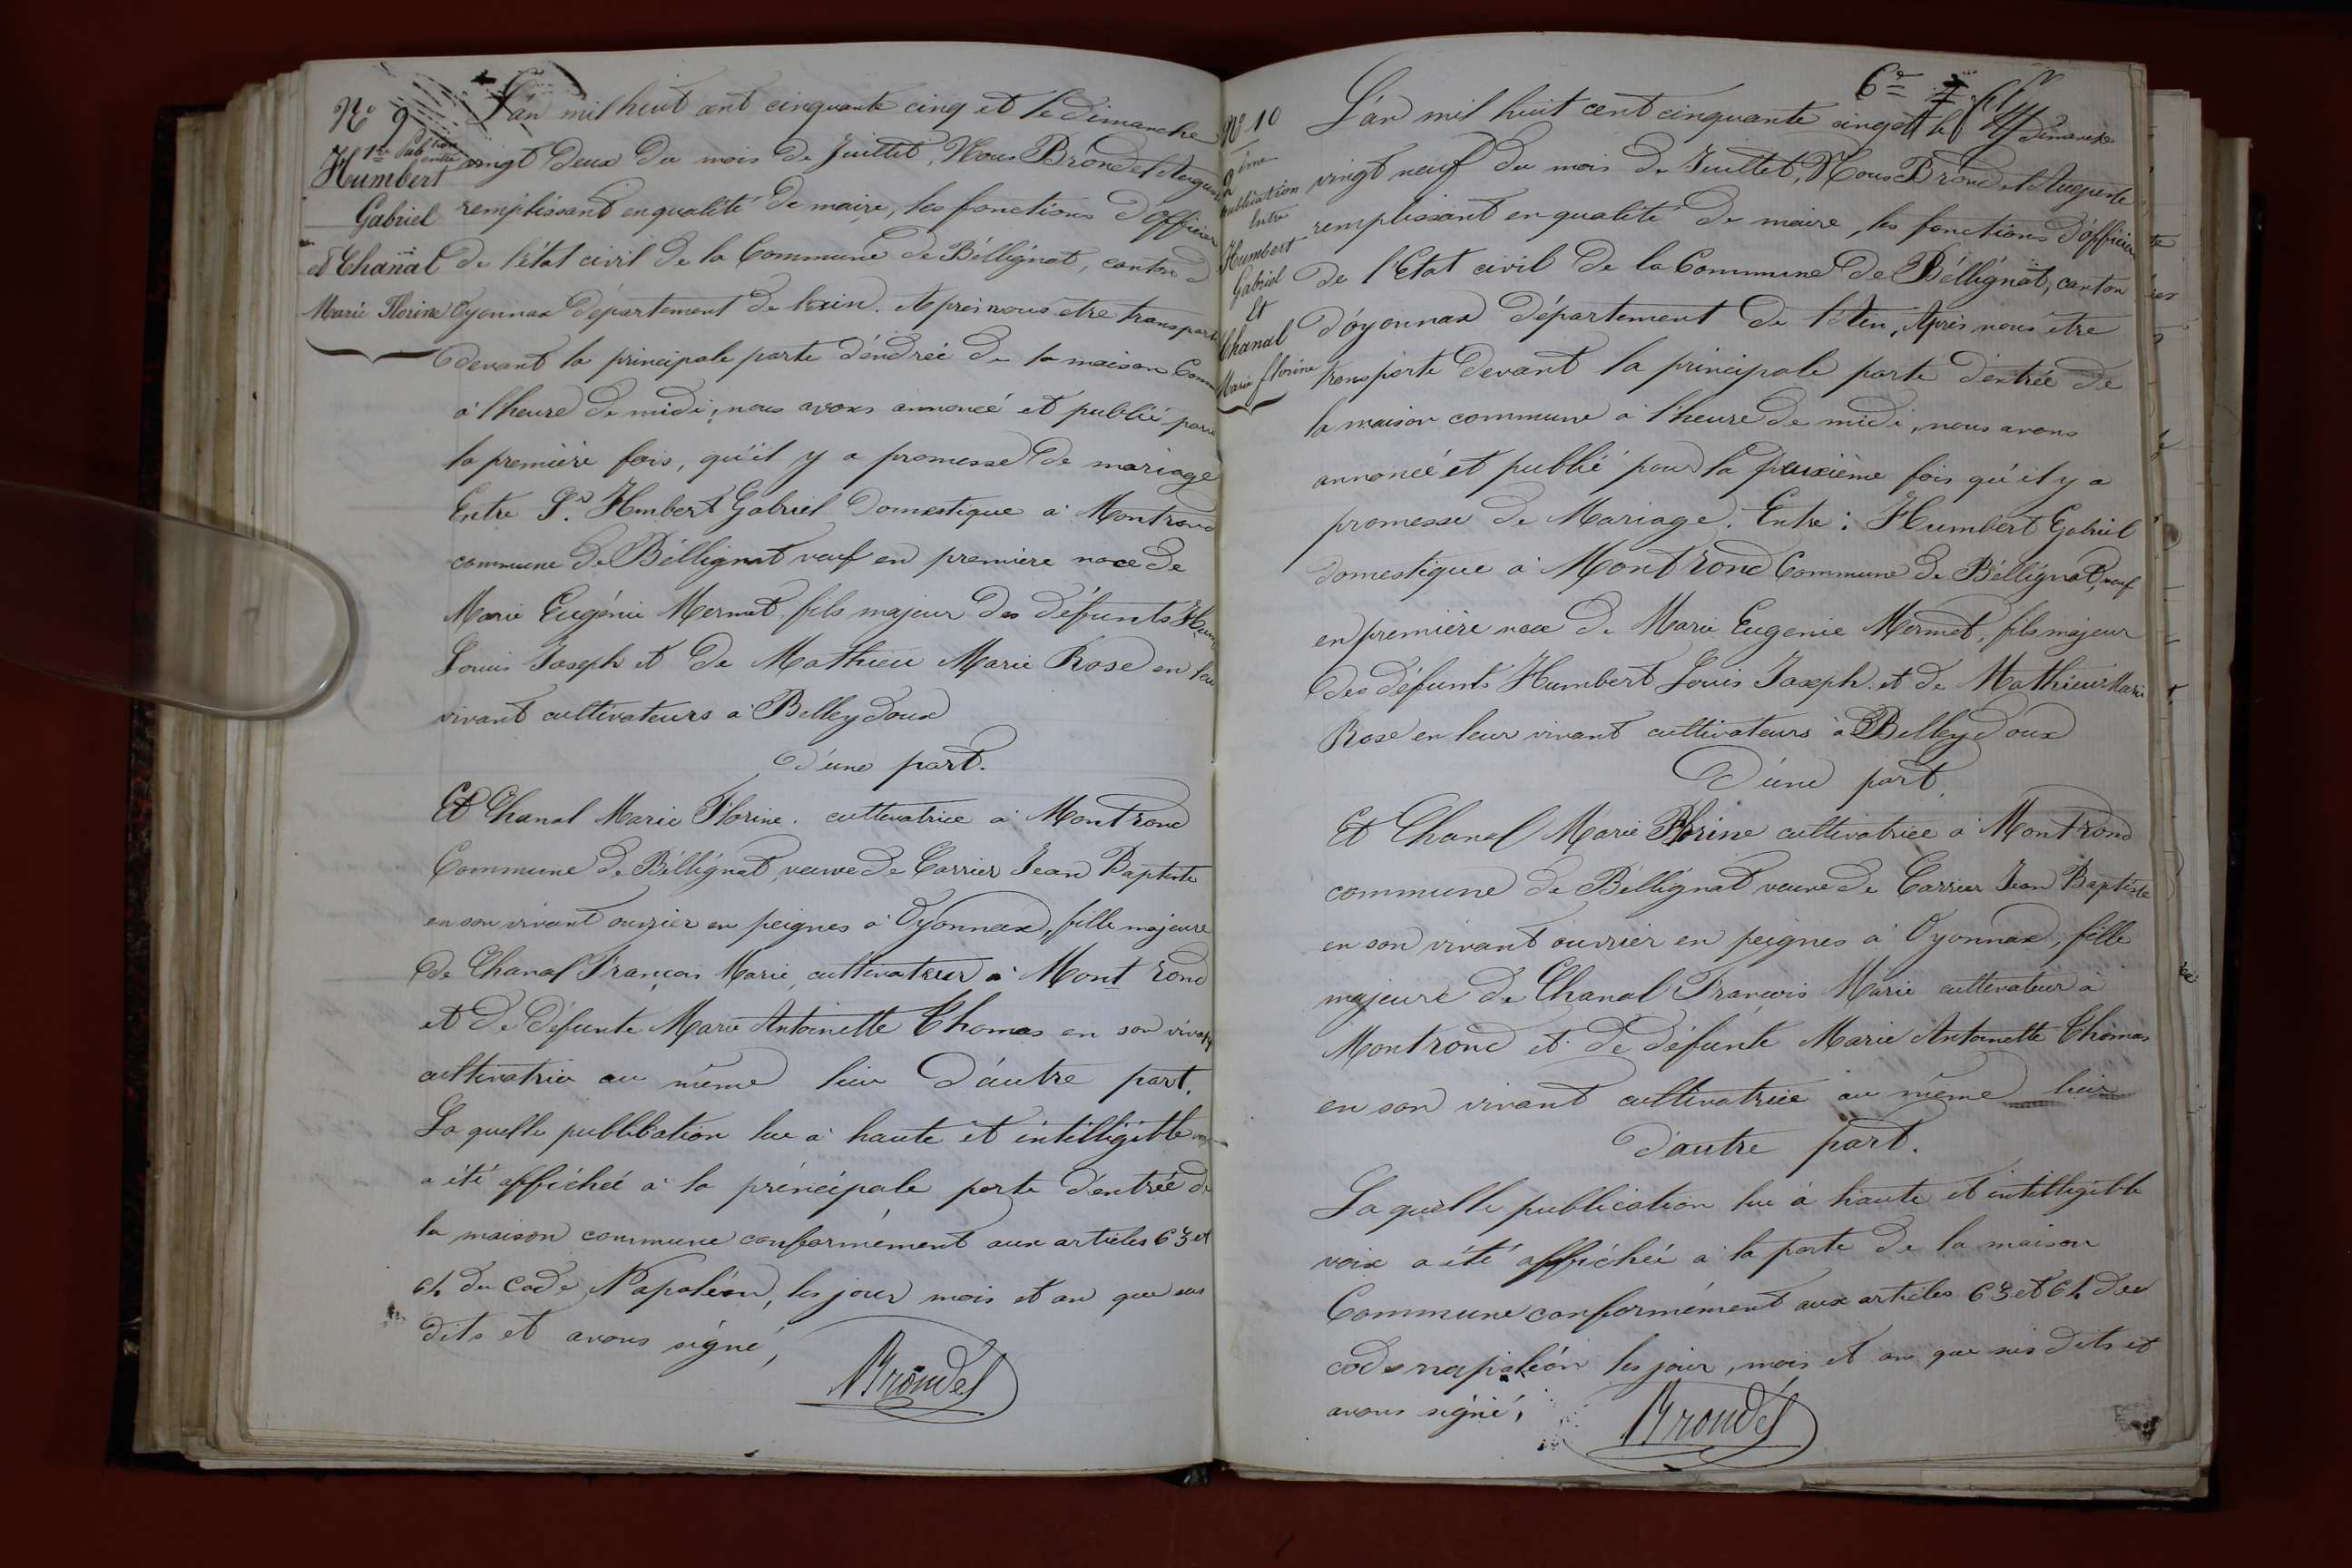 N° 9
1re Publication
entre
Humbert
Gabriel
et Chanal
Marie Florine
L'an mil huit cent cinquante cinq et le dimanche
vingt deux du mois de Juillet, Nous Brondel Auguste
remplissant en qualité de maire, les fonctions d'officier
de l'état civil de la Commune de Béllignat, canton d
Oyonnax département de l'ain. Après nous etre transporté
devant la principale porte d'endrée de la maison Comm
à l'heure de midi, nous avons annoncé et publié pour
la première fois, qu'il y a promesse de mariage
Entre Sr. Humbert Gabriel domestique à Montrond
commune de Bélligniat veuf en première noce de
Marie Eugénie Mermet fils majeur des défunts Hum
Louis Joseph et de Mathieu Marie Rose en leu
vivant cultivateurs à Belleydoux
d'une part.
Et Chanal Marie Florine. cultivatrice à Montrond
Commune de Bélligniat, veuve de Carrier Jean Baptiste
en son vivant ouvrier en peignes à Oyonnax, fille majeure
de Chanal François Marie, cultivateur à Mont rond
et de défunte Marie Antoinette Thomas en son vivant
cultivatrice au même lieu d'autre part.
La quelle publication lue à haute et intelligible voix
a été affichée à la principale porte d'entrée de
la maison commune conformément aux articles 63 et
64 du Code Napoléon, les jour mois et an que sus
dits et avons signé,
Brondel
6e
N° 10
2ème
publication
Entre
Humbert
Gabriel
Et
Chanal
Marie florine
L'an mil huit cent cinquante cinq et le Dimanche
vingt neuf du mois de Juillet, Nous Brondel Auguste
remplissant en qualité de maire, les fonctions d'officier
de l'Etat civil de la Commune de Bélligniat, canton
d'oyonnax département de l'Ain, Après nous être
transporté devant la principale porte d'entrée de
la maison commune à l'heure de midi, nous avons
annoncé et publié pour la deuxième fois qu'il y a
promesse de Mariage. Entre : Humbert Gabriel
domestique à Montrond Commune de Bélligniat, veuf
en première noce de Marie Eugenie Mermet, fils majeur
des défunts Humbert Louis Joseph et de Mathieu Marie
Rose en leur vivant cultivateurs à Belleydoux
D'une part.
Et Chanal Marie Florine cultivatrice à Montrond
commune de Bélligniat veuve de Carrier Jean Baptiste
en son vivant ouvrier en peignes à Oyonnax, fille
majeure de Chanal François Marie cultivateur à
Montrond et de défunte Marie Antoinette Thomas
en son vivant cultivatrice au même lieu
d'autre part.
La quelle publication lue à haute et intelligible
voix a été affichée à la porte de la maison
Commune conformément aux articles 63 et 64 du
code napoléon les jour, mois et an que sus dits et
avons signé,
Brondel